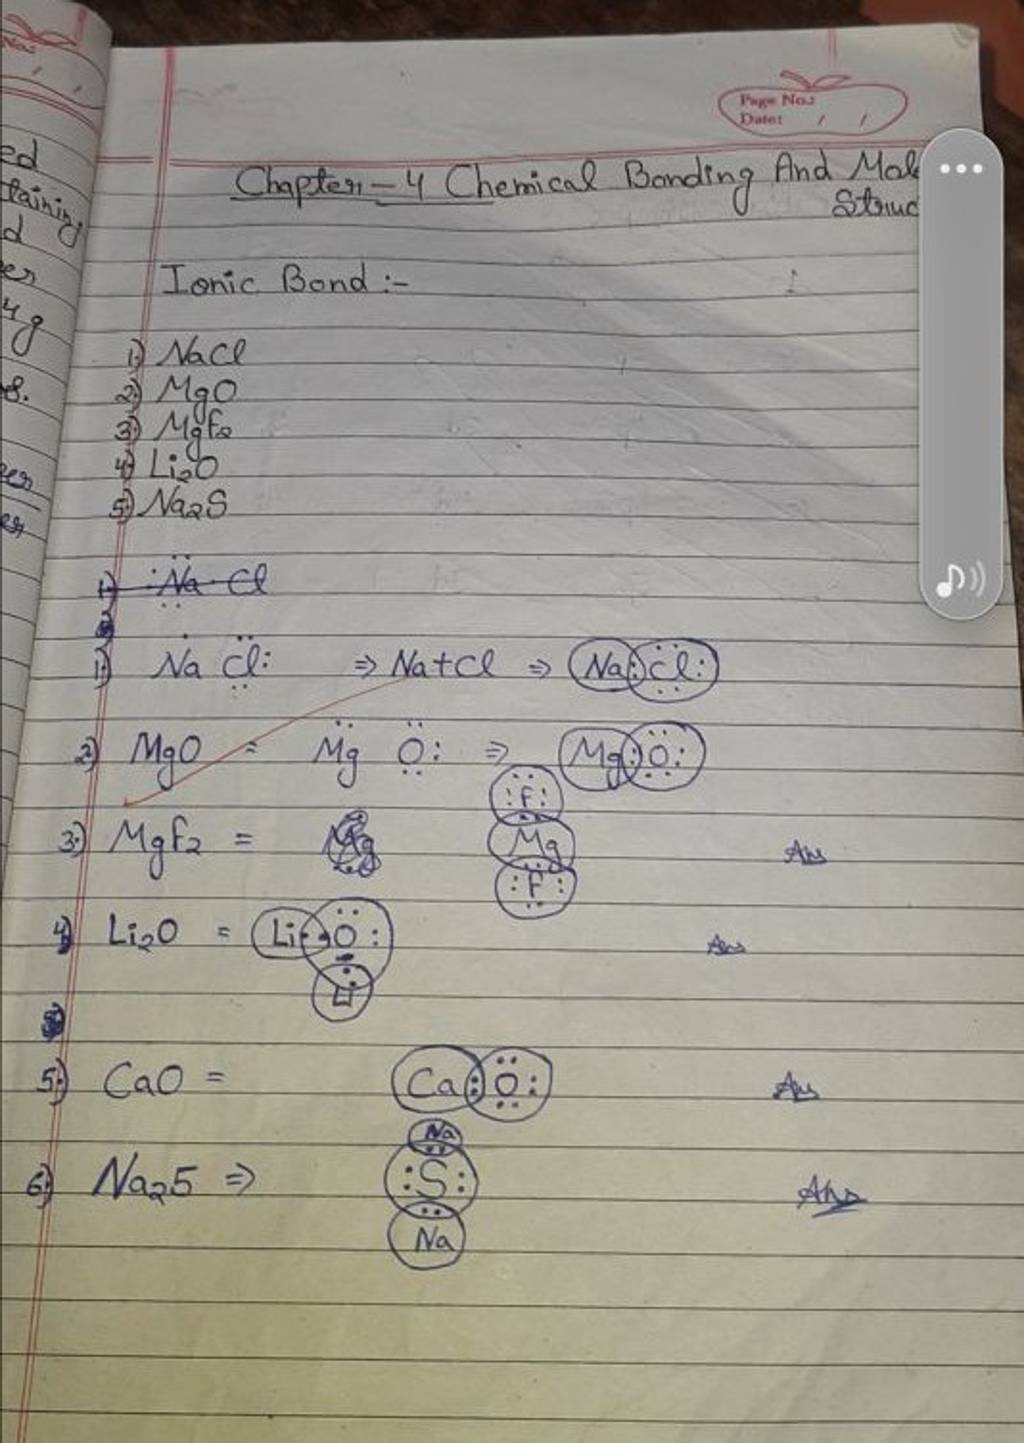 No.:
/ /
Page No.:
Date: / /
ed
taining
d
er
4g
8.
er
er
Chapter - 4 Chemical Bonding And Mol
Struc
Ionic Bond :-
1) NaCl
2) MgO
3) MgF2
4) Li2O
5) Na2S
1) Na Cl
1) Na Cl: ⇒ Na+Cl ⇒ Na:Cl:
2) MgO = Mg O: ⇒ Mg:O:
:F:
3) MgF2 = Mg Mg Ans
:F:
4) Li2O = Li O: Ans
Li
5) CaO = Ca:O: Ans
Na
6) Na2S ⇒ :S: Ans
Na